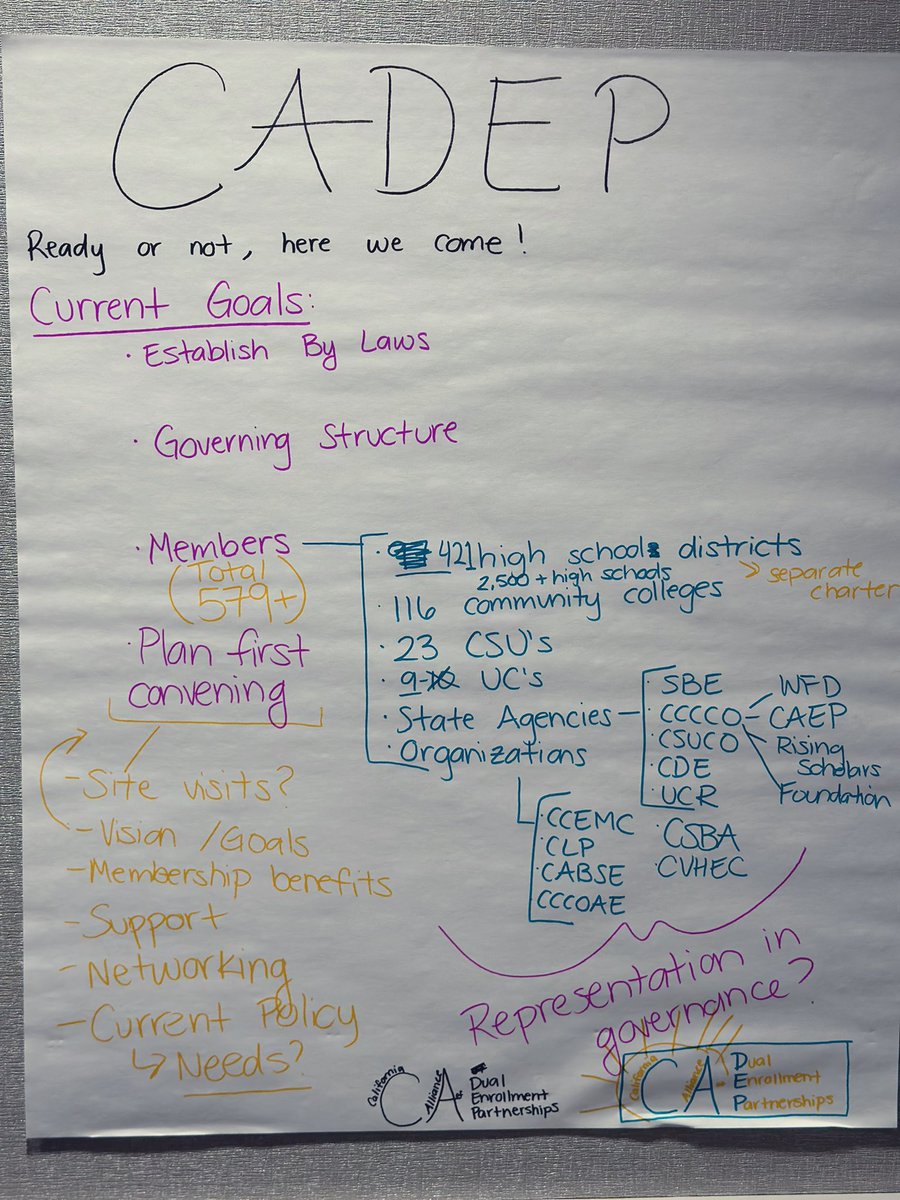 CADEP
Ready or not, here we come!
Current Goals:
· Establish By Laws
· Governing Structure
· Members
(Total
579+)
· 421 high school districts
2,500+ high schools
> separate
charter
· 116 community colleges
· 23 CSU's
· 9 UC's
· State Agencies
· Organizations
· SBE
· CCCCO
· CSUCO
· CDE
· UCR
WFD
CAEP
Rising
Scholars
Foundation
· CCEMC
· CLP
· CABSE
· CCCOAE
· CSBA
· CVHEC
· Plan first
convening
- Site visits?
- Vision / Goals
- Membership benefits
- Support
- Networking
- Current Policy
↳ Needs?
Representation in
governance?
California
Alliance
Dual
Enrollment
Partnerships
California
Alliance
Dual
Enrollment
Partnerships